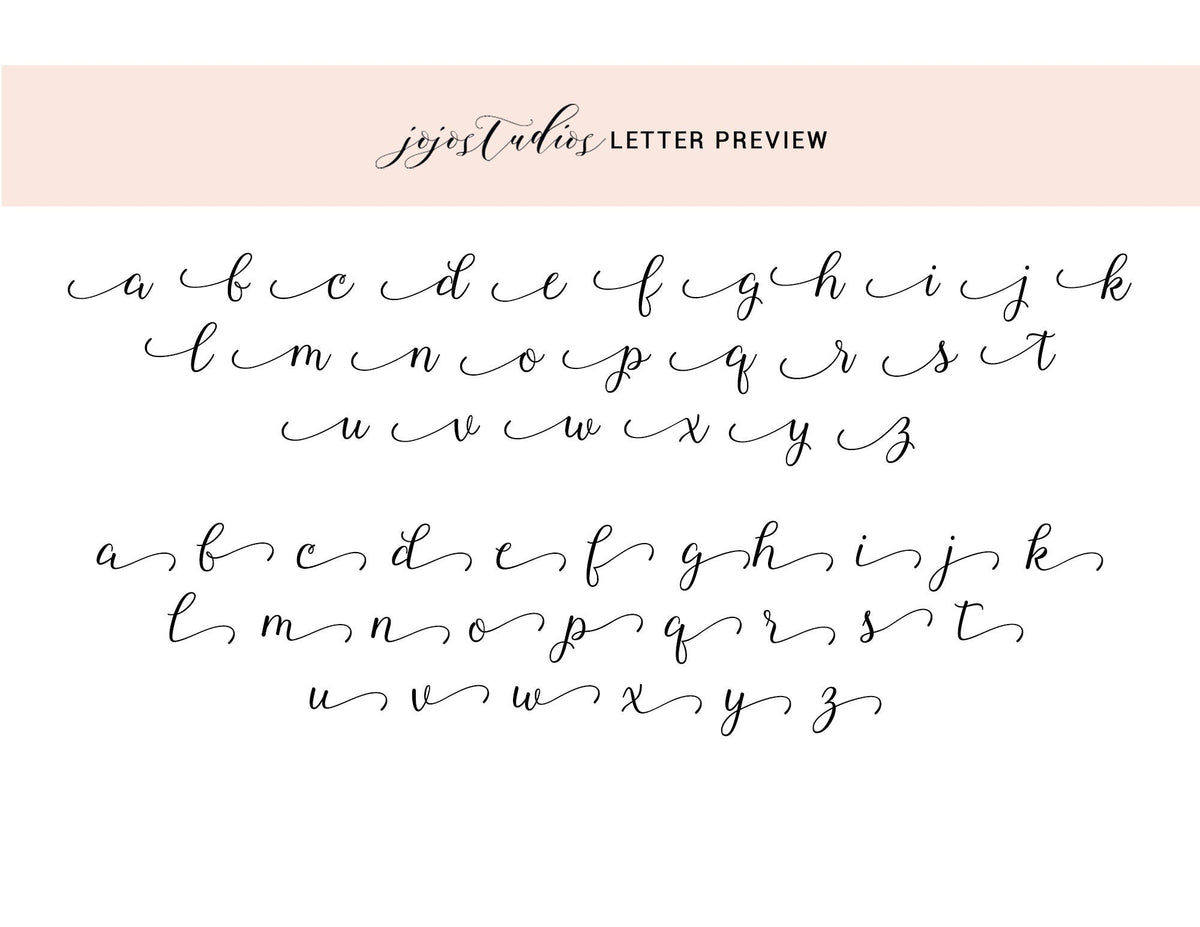 jojostudios LETTER PREVIEW
a b c d e f g h i j k
l m n o p q r s t
u v w x y z
a b c d e f g h i j k
l m n o p q r s t
u v w x y z